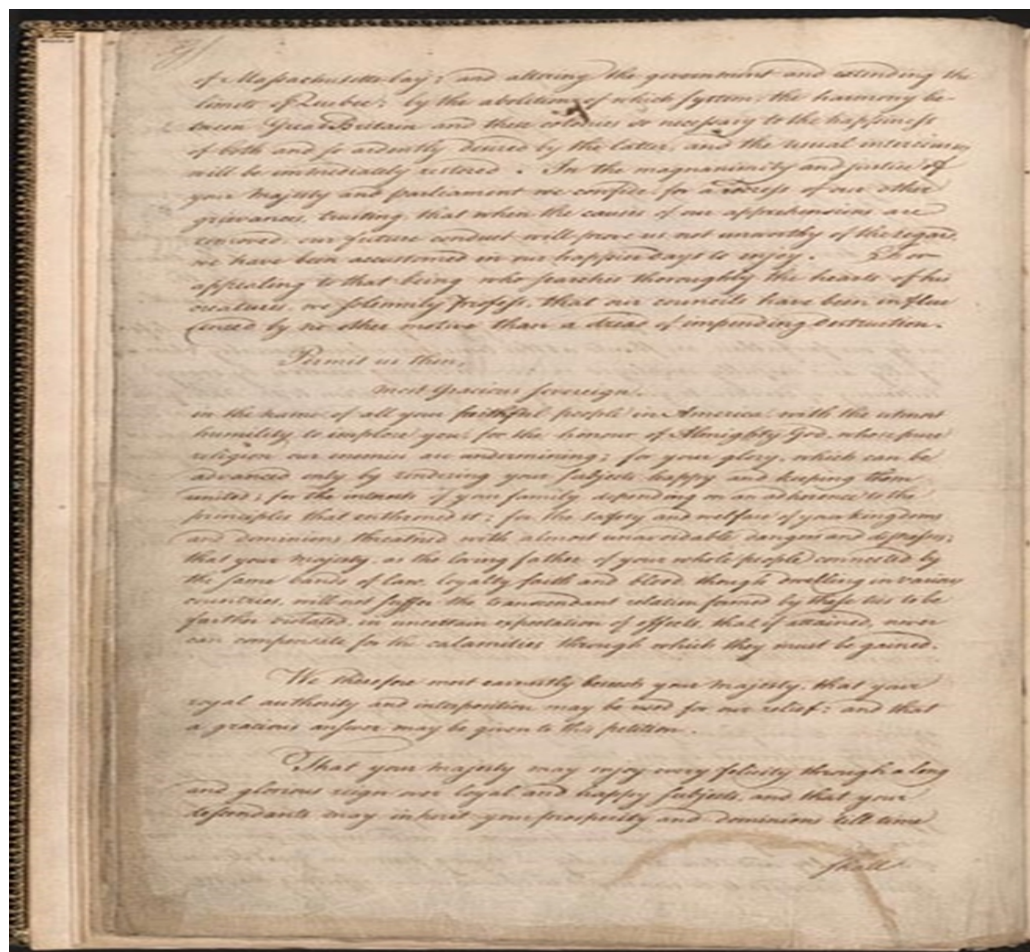 of Massachusetts-bay; and altering the government and extending the
limits of Quebec; by the abolition of which system, the harmony be-
tween Great Britain and these colonies so necessary to the happiness
of both and so ardently desired by the latter, and the usual intercourses
will be immediately restored. In the magnanimity and justice of
your majesty and parliament we confide, for a redress of our other
grievances, trusting that when the causes of our apprehensions are
removed, our future conduct will prove us not unworthy of the regard,
we have been accustomed in our happier days to enjoy. For
appealing to that being who searches thoroughly the hearts of his
creatures, we solemnly profess, that our councils have been influ
enced by no other motive than a dread of impending destruction.
Permit us then,
most gracious sovereign,
in the name of all your faithful people in America, with the utmost
humility to implore you, for the honour of Almighty God, whose pure
religion our enemies are undermining; for your glory, which can be
advanced only by rendering your subjects happy and keeping them
united; for the interests of your family depending on an adherence to the
principles that enthroned it; for the safety and welfare of your kingdoms
and dominions threatned with almost unavoidable dangers and distresses;
that your majesty, as the loving father of your whole people connected by
the same bands of law, loyalty faith and blood, though dwelling in various
countries, will not suffer the transcendant relation formed by these ties to be
farther violated, in uncertain expectation of effects, that, if attained, never
can compensate for the calamities through which they must be gained.
We therefore most earnestly beseech your majesty, that your
royal authority and interposition may be used for our relief; and that
a gracious answer may be given to this petition.
That your majesty may enjoy every felicity through a long
and glorious reign over loyal and happy subjects, and that your
descendants may inherit your prosperity and dominions till time
shall